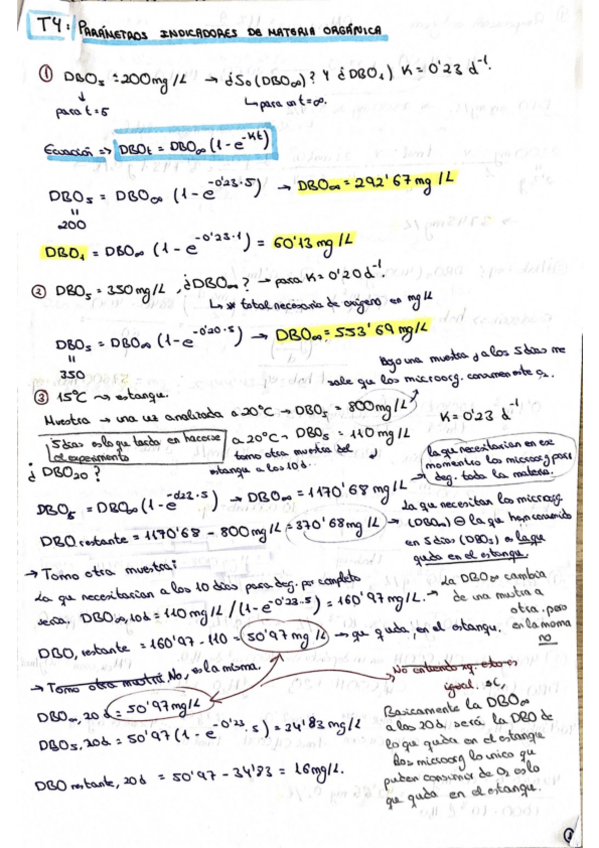 T4: PARÁMETROS INDICADORES DE MATERIA ORGÁNICA
① DBO₅ = 200 mg/L → ¿S₀ (DBO∞)? Y ¿DBO₁) K = 0'23 d⁻¹.
↓
para t=5
↳ para un t=∞.
Ecuación => DBOt = DBO∞ (1 - e^-Kt)
DBO₅ = DBO∞ (1 - e^-0'23·5) → DBO∞ = 292'67 mg/L
200
DBO₁ = DBO∞ (1 - e^-0'23·1) = 60'13 mg/L
② DBO₅ = 350 mg/L, ¿DBO∞? → para K = 0'20 d⁻¹
↳ * total necesaria de oxígeno en mg/L
DBO₅ = DBO∞ (1 - e^-0'20·5) → DBO∞ = 553'69 mg/L
350
Cojo una muestra y a los 5 días me
sale que los microorg. consumen este O₂.
③ 15ºC → estanque.
Muestra → una vez analizada a 20ºC → DBO₅ = 800 mg/L
K = 0'23 d⁻¹
5 días es lo que tarda en hacerse
el experimento
a 20ºC → DBO₅ = 110 mg/L
↑ tomo otra muestra del
estanque a los 10 d...
la que necesitarían en ese
momento los microorg para
deg. toda la materia.
¿DBO₂₀?
DBO₅ = DBO∞ (1 - e^-0'23·5) → DBO∞ = 1170'68 mg/L
DBO restante = 1170'68 - 800 mg/L = 370'68 mg/L →
La que necesitan los microorg.
(DBO∞) ⊖ la que han consumido
en 5 días (DBO₅) = la que
queda en el estanque.
→ Tomo otra muestra:
La que necesitarían a los 10 días para deg. por completo
sería, DBO∞,10d = 110 mg/L / (1 - e^-0'23·5) = 160'97 mg/L. →
La DBO∞ cambia
de una muestra a
otra, pero
en la misma
no
DBO, restante = 160'97 - 110 = 50'97 mg/L → que queda, en el estanque.
→ Tomo otra muestra. No, es la misma.
No entiendo xq esto es
igual. sí,
DBO∞, 20d = 50'97 mg/L
DBO₅, 20d = 50'97 (1 - e^-0'23·5) = 34'83 mg/L
DBO restante, 20d = 50'97 - 34'83 = 16 mg/L.
Básicamente la DBO∞
a los 20d. será la DBO de
lo que queda en el estanque
Los microorg lo único que
pueden consumir de O₂ es lo
que queda en el estanque.